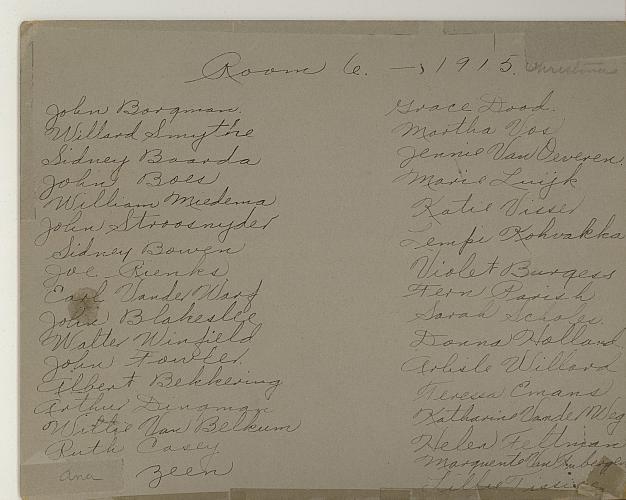 Room 6. — 1915. Christmas
John Borgman.
Willard Smythe
Sidney Baarda
John Boes
William Miedema
John Stroosnyder
Sidney Bowen
Joe Rienks
Carl Vander Warf
John Blakeslee
Walter Winfield
John Fowler.
Albert Bekkering
Arthur Dingman
Willie Van Belkum
Ruth Casey
Ana Zeen
Grace Dood.
Martha Vos
Jennie Van Oeveren.
Marie Luijk
Katie Visser
Lempi Kohvakka
Violet Burgess
Fern Parish
Sarah Scholes.
Donna Holland
Arlisle Willard
Teressa Emans
Katharine Vande Weg
Helen Feltman
Marguerite Van
Lillie